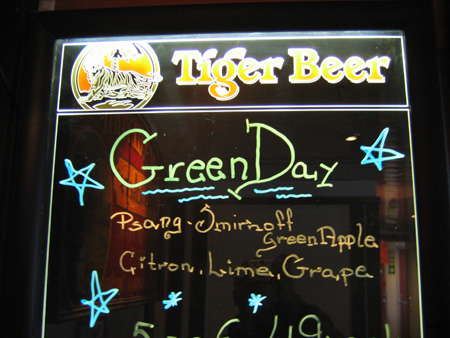 Tiger Beer
Green Day
Psang - Smirnoff
Green Apple
Citron, Lime, Grape